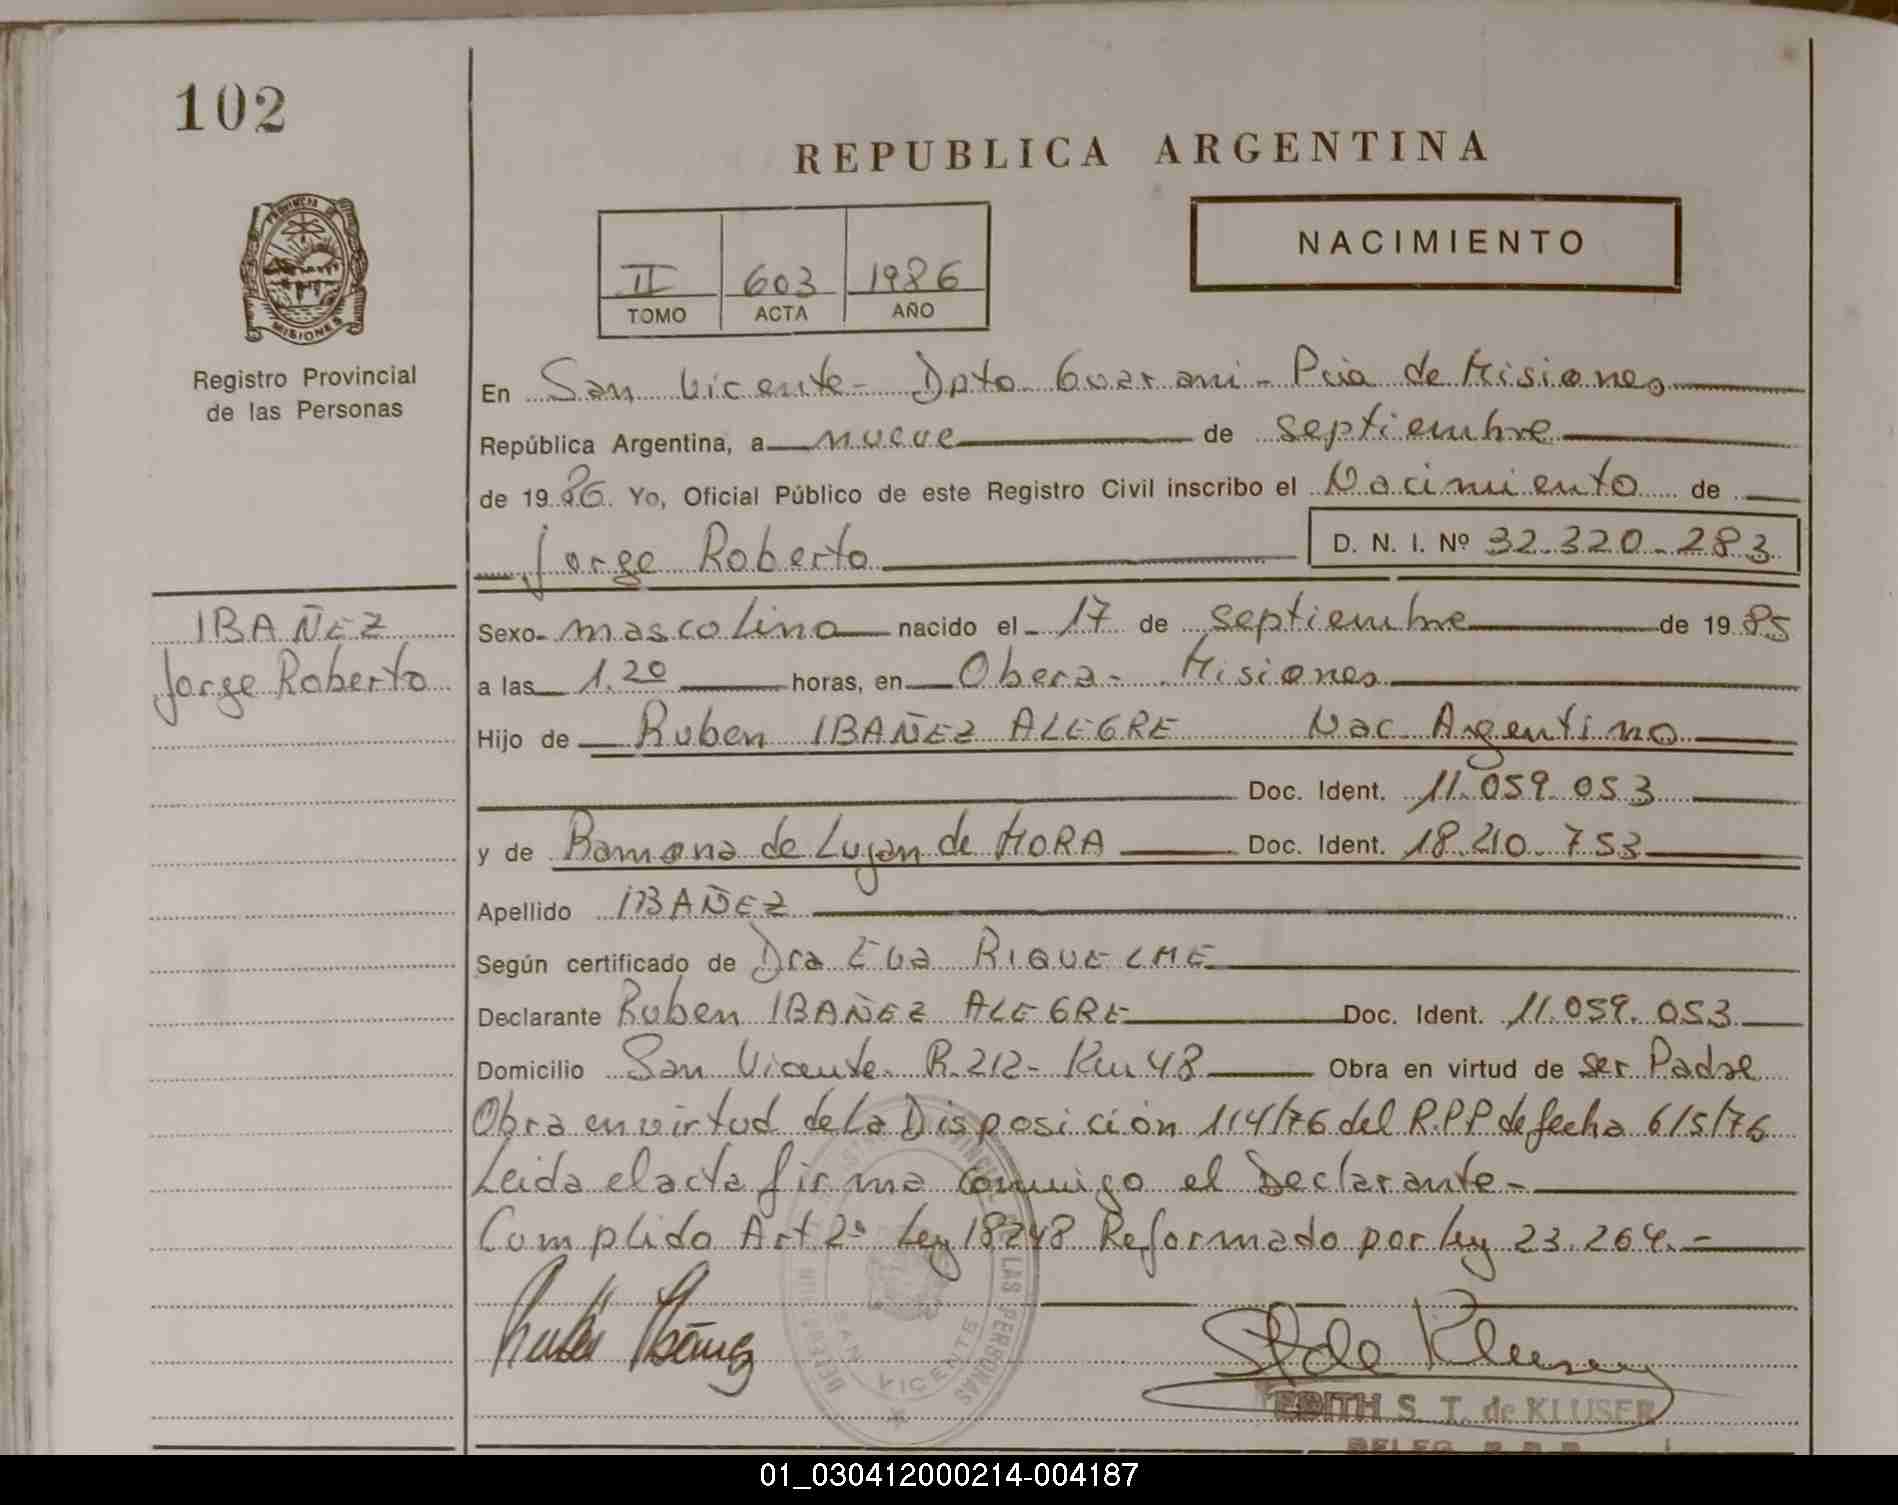 102
REPUBLICA ARGENTINA
NACIMIENTO
II 603 1986
TOMO ACTA AÑO
PROVINCIA DE
MISIONES
Registro Provincial
de las Personas
En San Vicente - Dpto Guarani - Pcia de Misiones
República Argentina, a nueve de septiembre
de 1986. Yo, Oficial Público de este Registro Civil inscribo el Nacimiento de
Jorge Roberto D. N. I. Nº 32.320.283
IBAÑEZ
Jorge Roberto
Sexo masculino nacido el 17 de septiembre de 1985
a las 1.20 horas, en Obera - Misiones
Hijo de Ruben IBAÑEZ ALEGRE Nac. Argentino
Doc. Ident. 11.059.053
y de Ramona de Lujan de MORA Doc. Ident. 18.210.753
Apellido IBAÑEZ
Según certificado de Dra Eva RIQUELME
Declarante Ruben IBAÑEZ ALEGRE Doc. Ident. 11.059.053
Domicilio San Vicente - R. 212 - Km 48 Obra en virtud de ser Padre
Obra en virtud de la Disposición 114/76 del R.P.P de fecha 6/5/76
Leida el acta firma conmigo el Declarante -
Cumplido Art 2º Ley 18248 Reformado por ley 23.264. -
LAS PERSONAS
SAN VICENTE
EDITH S. T. de KLUSER
01_030412000214-004187